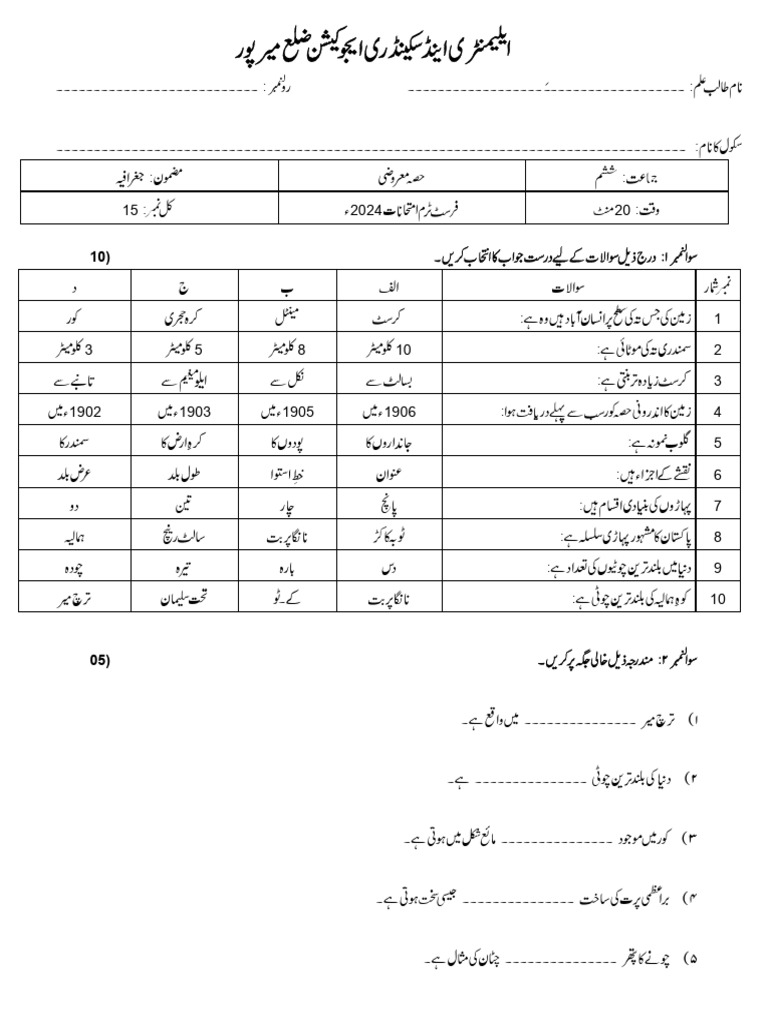 ایلیمنٹری اینڈ سکینڈری ایجوکیشن ضلع میرپور
نام طالب علم: ------------------ رولنمبر : ---------------------------
سکول کا نام: ------------------------------------------------------------------------
جماعت: ششم حصہ معروضی مضمون: جغرافیہ
وقت: 20منٹ فرسٹ ٹرم امتحانات 2024ء کل نمبر: 15
سوالنمبر ۱: درج ذیل سوالات کے لیے درست جواب کا انتخاب کریں۔ (10
نمبر شمار سوالات الف ب ج د
1 زمین کی جس تہ کی سطح پر انسان آباد ہیں وہ ہے: کرسٹ مینٹل کرہ حجری کور
2 سمندری تہ کی موٹائی ہے: 10 کلومیٹر 8 کلومیٹر 5 کلومیٹر 3 کلومیٹر
3 کرسٹ زیادہ تر بنتی ہے: بسالٹ سے نکل سے ایلومینیم سے تانبے سے
4 زمین کا اندرونی حصہ کور سب سے پہلے دریافت ہوا: 1906ء میں 1905ء میں 1903ء میں 1902ء میں
5 گلوب نمونہ ہے: جانداروں کا پودوں کا کرہ ارض کا سمندر کا
6 نقشے کے اجزاء ہیں: عنوان خطِ استوا طول بلد عرض بلد
7 پہاڑوں کی بنیادی اقسام ہیں: پانچ چار تین دو
8 پاکستان کا مشہور پہاڑی سلسلہ ہے: ٹوبہ کاکڑ نانگا پربت سالٹ رینج ہمالیہ
9 دنیا میں بلند ترین چوٹیوں کی تعداد ہے: دس بارہ تیرہ چودہ
10 کوہِ ہمالیہ کی بلند ترین چوٹی ہے: نانگا پربت کے۔ٹو تخت سلیمان ترچ میر
سوالنمبر ۲: مندرجہ ذیل خالی جگہ پر کریں۔ (05
۱) ترچ میر --------------- میں واقع ہے۔
۲) دنیا کی بلند ترین چوٹی --------------- ہے۔
۳) کور میں موجود --------------- مائع شکل میں ہوتی ہے۔
۴) براعظمی پرت کی ساخت --------------- جیسی سخت ہوتی ہے۔
۵) چونے کا پتھر --------------- چٹان کی مثال ہے۔